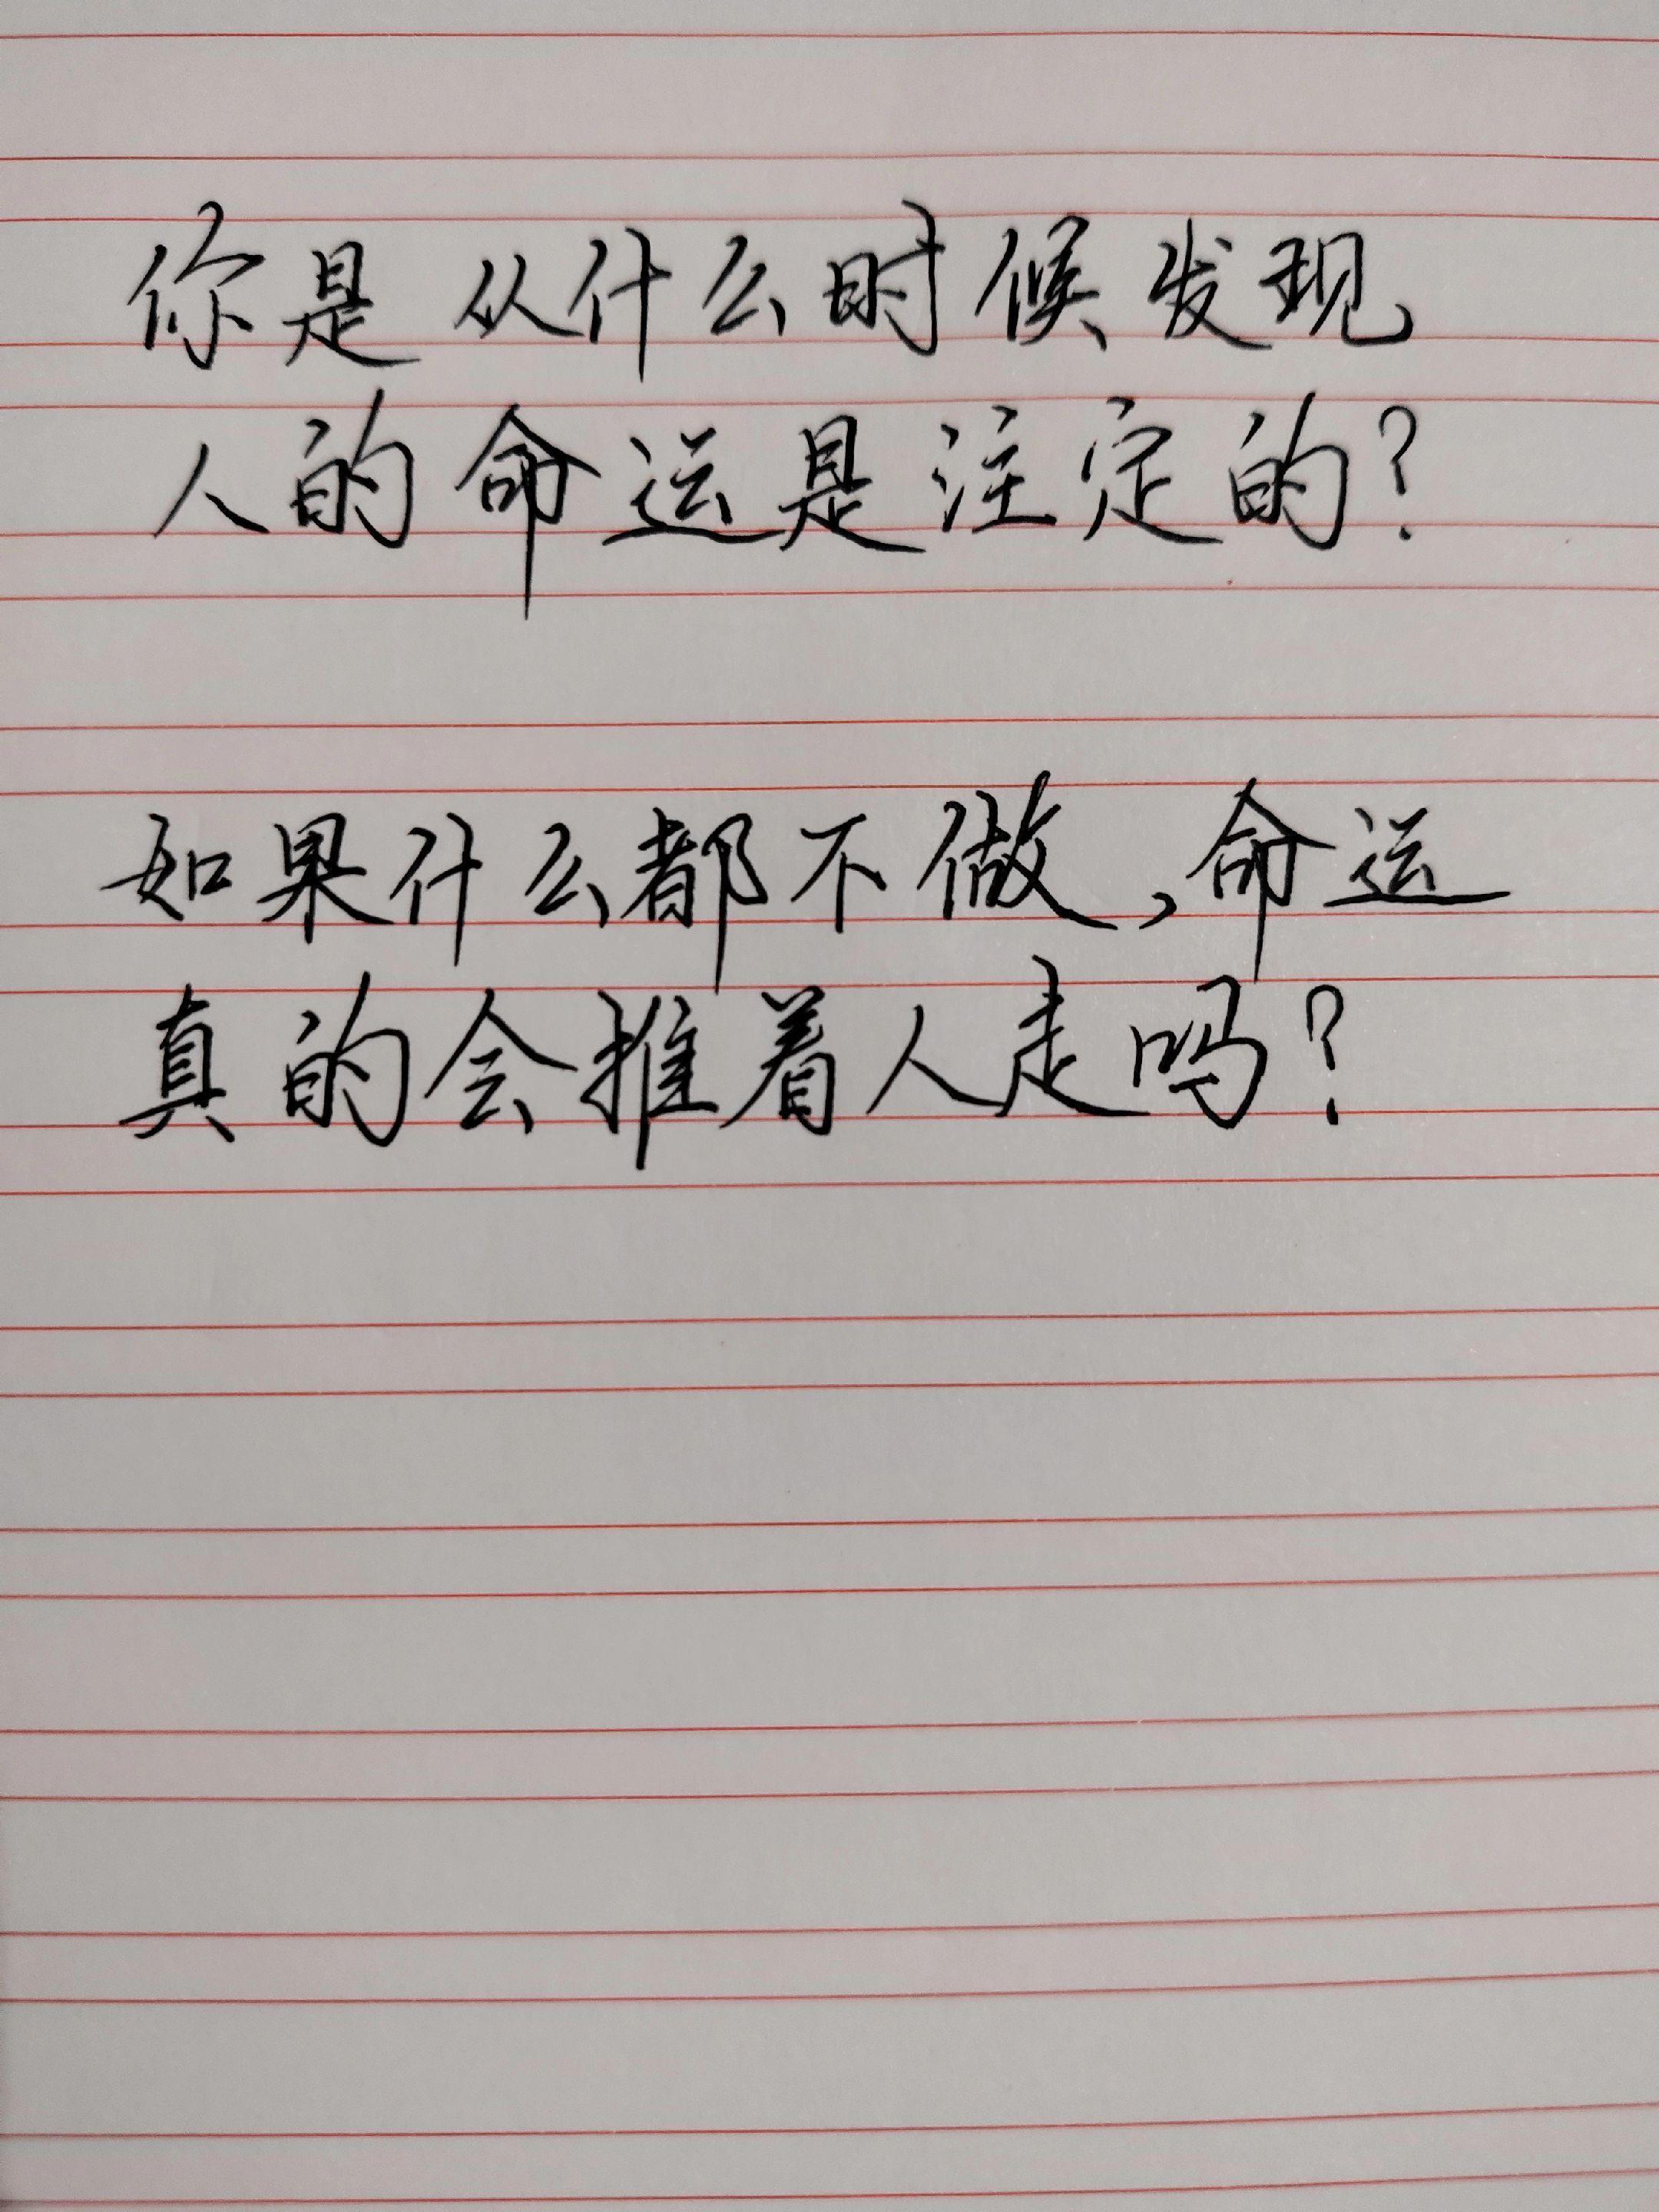 你是从什么时候发现
人的命运是注定的?
如果什么都不做,命运
真的会推着人走吗?